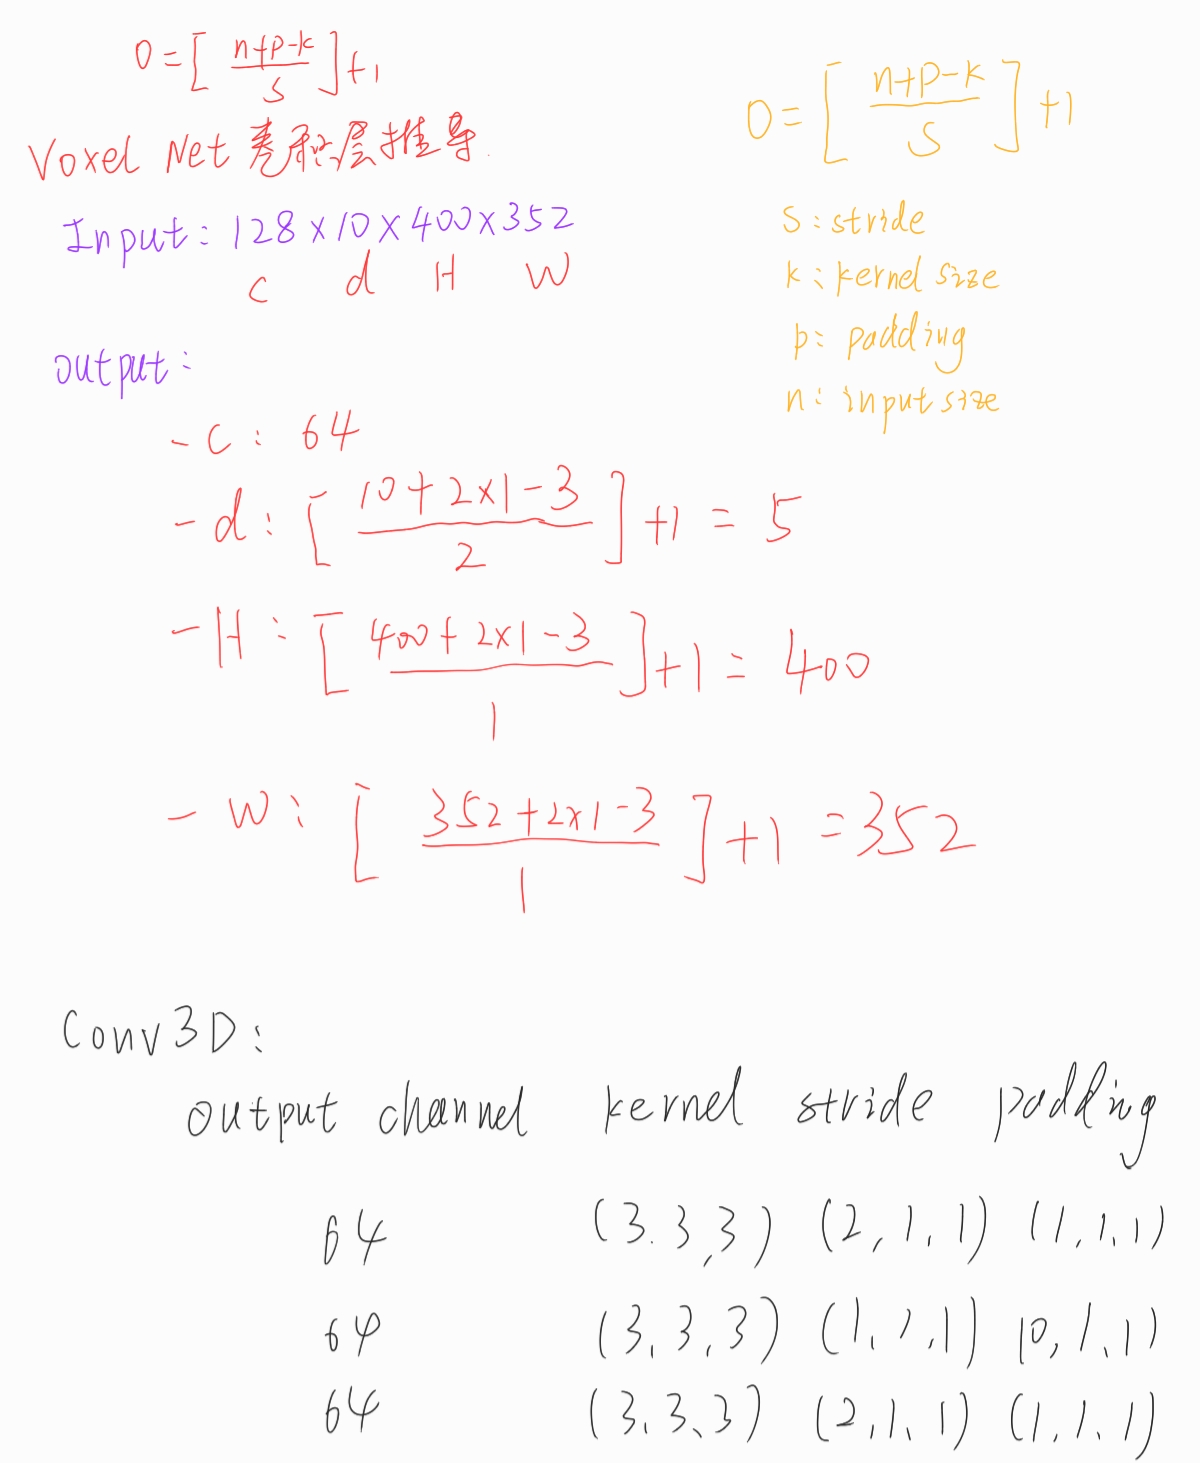 O = [ (n+p-k)/S ] +1
Voxel Net 卷积层推导
Input: 128×10×400×352
C d H W
output:
- C: 64
- d: [ (10+2×1-3)/2 ] +1 = 5
- H: [ (400+2×1-3)/1 ] +1 = 400
- W: [ (352+2×1-3)/1 ] +1 = 352
O = [ (n+p-k)/S ] +1
S: stride
k: kernel size
p: padding
n: input size
Conv3D:
output channel kernel stride padding
64 (3.3,3) (2,1,1) (1,1,1)
64 (3,3,3) (1,1,1) (0,1,1)
64 (3,3,3) (2,1,1) (1,1,1)